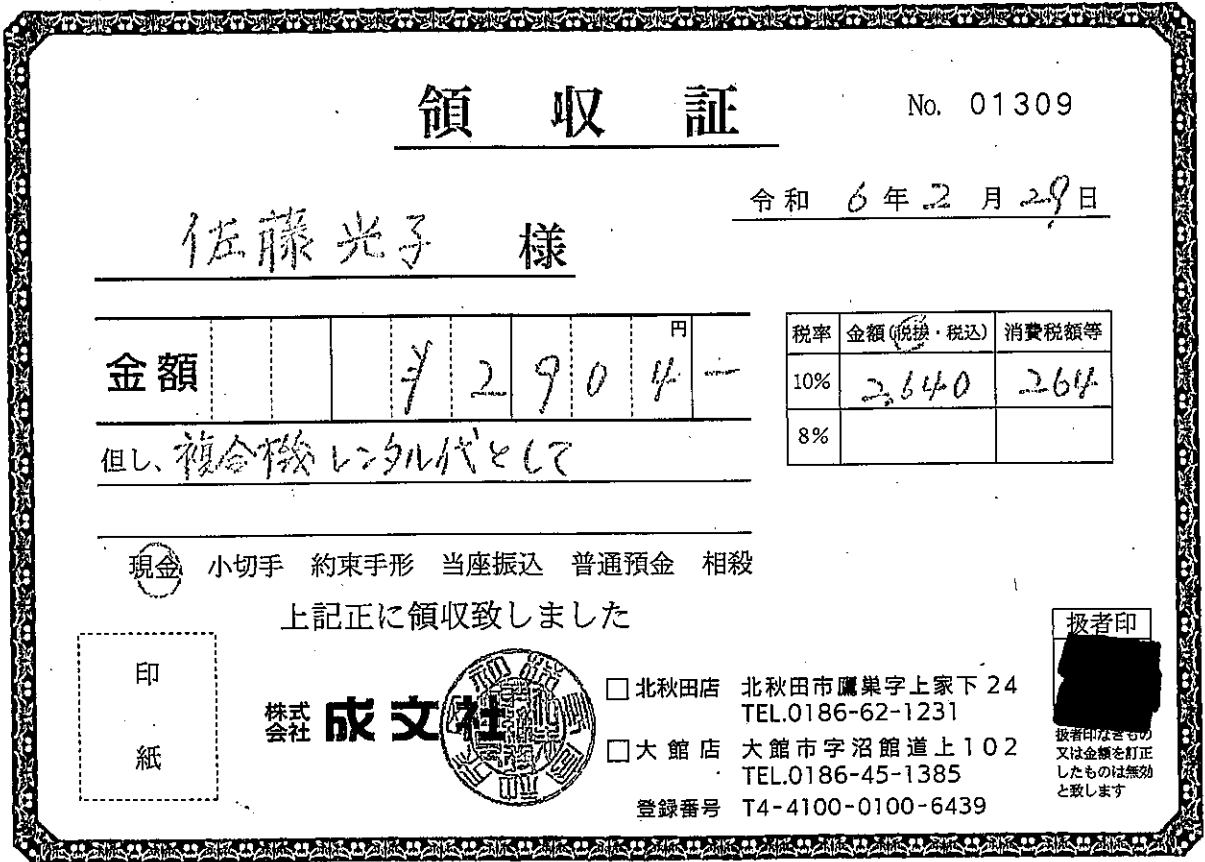 領収証
No. 01309
令和 6年 2月 29日
佐藤光子 様
金額 ¥2904円—
税率 金額(税抜・税込) 消費税額等
10% 2,640 264
8%
但し、複合機レンタル代として
現金 小切手 約束手形 当座振込 普通預金 相殺
上記正に領収致しました
印紙
株式会社 成文社
□北秋田店 北秋田市鷹巣字上家下24
TEL.0186-62-1231
□大館店 大館市字沼館道上102
TEL.0186-45-1385
登録番号 T4-4100-0100-6439
扱者印
扱者印なきもの
又は金額を訂正
したものは無効
と致します